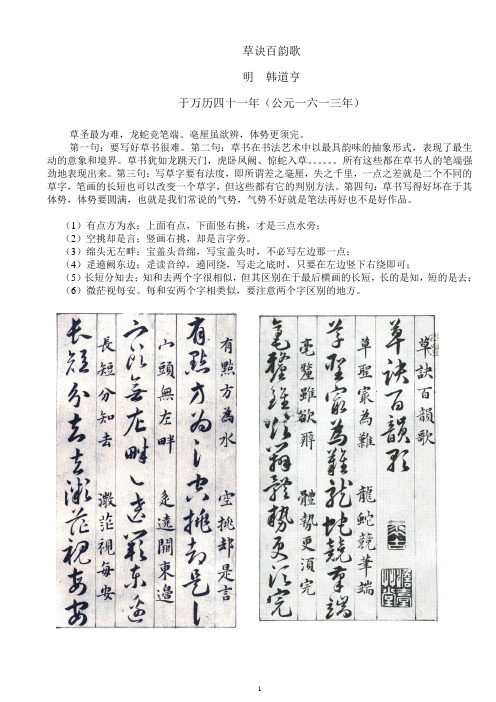 草诀百韵歌
明 韩道亨
于万历四十一年（公元一六一三年）
草圣最为难，龙蛇竞笔端。毫厘虽欲辨，体势更须完。
第一句：要写好草书很难。第二句：草书在书法艺术中以最具韵味的抽象形式，表现了最生
动的意象和境界。草书犹如龙跳天门，虎卧凤阙、惊蛇入草。。。。。。所有这些都在草书人的笔端强
劲地表现出来。第三句：写草字要有法度，即所谓差之毫厘，失之千里，一点之差就是二个不同的
草字，笔画的长短也可以改变一个草字，但这些都有它的判别方法。第四句：草书写得好坏在于其
体势，体势要圆满，也就是我们常说的气势，气势不好就是笔法再好也不是好作品。
（1）有点方为水；上面有点，下面竖右挑，才是三点水旁；
（2）空挑却是言；竖画右挑，却是言字旁。
（3）绵头无左畔；宝盖头音绵，写宝盖头时，不必写左边那一点；
（4）辵遶阙东边；辵读音绰，遶同绕，写走之底时，只要在左边竖下右绕即可；
（5）长短分知去；知和去两个字很相似，但其区别在于最后横画的长短，长的是知，短的是去；
（6）微茫视每安。每和安两个字相类似，要注意两个字区别的地方。
草訣百韻歌
草訣百韻歌
草聖㝡為難 龍蛇競筆端
草聖㝡為難龍蛇競筆端
毫釐雖欲辨 體勢更須完
毫釐雖欲辨體勢更須完
有點方為水 空挑却是言
有點方為 空挑却是
山頭無左畔 辵遶闕東邊
無左畔 遶闕東邊
長短分知去 微茫視每安
長短分 去微茫視每安
1